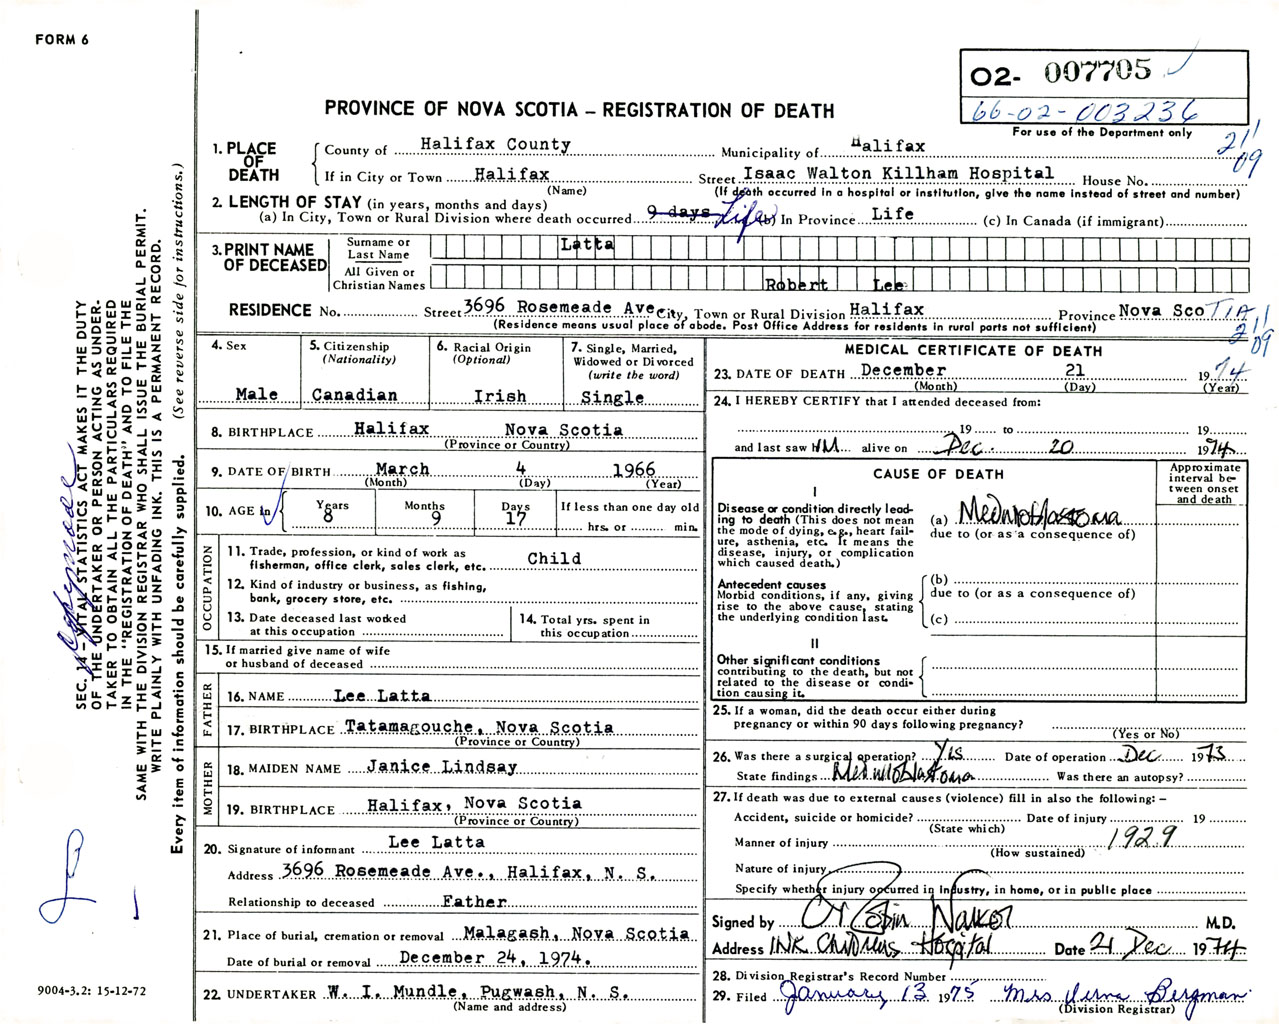 FORM 6
O2- 007705
66-02-003236
For use of the Department only
PROVINCE OF NOVA SCOTIA – REGISTRATION OF DEATH
211
09
1. PLACE OF DEATH
County of Halifax County Municipality of Halifax
If in City or Town Halifax Street Isaac Walton Killham Hospital House No.
(Name) (If death occurred in a hospital or institution, give the name instead of street and number)
2. LENGTH OF STAY (in years, months and days)
(a) In City, Town or Rural Division where death occurred 9 days Life (b) In Province Life (c) In Canada (if immigrant)
3. PRINT NAME OF DECEASED
Surname or Last Name Latta
All Given or Christian Names Robert Lee
RESIDENCE No. Street 3696 Rosemeade Ave City, Town or Rural Division Halifax Province Nova ScoTIA
(Residence means usual place of abode. Post Office Address for residents in rural parts not sufficient)
211
09
4. Sex
Male
5. Citizenship
(Nationality)
Canadian
6. Racial Origin
(Optional)
Irish
7. Single, Married,
Widowed or Divorced
(write the word)
Single
8. BIRTHPLACE Halifax Nova Scotia
(Province or Country)
9. DATE OF BIRTH March 4 1966
(Month) (Day) (Year)
10. AGE in
Years Months Days If less than one day old
8 9 17 hrs. or min.
OCCUPATION
11. Trade, profession, or kind of work as
fisherman, office clerk, sales clerk, etc. Child
12. Kind of industry or business, as fishing,
bank, grocery store, etc.
13. Date deceased last worked
at this occupation
14. Total yrs. spent in
this occupation
15. If married give name of wife
or husband of deceased
FATHER
16. NAME Lee Latta
17. BIRTHPLACE Tatamagouche, Nova Scotia
(Province or Country)
MOTHER
18. MAIDEN NAME Janice Lindsay
19. BIRTHPLACE Halifax, Nova Scotia
(Province or Country)
20. Signature of informant Lee Latta
Address 3696 Rosemeade Ave., Halifax, N. S.
Relationship to deceased Father
21. Place of burial, cremation or removal Malagash, Nova Scotia
Date of burial or removal December 24, 1974.
22. UNDERTAKER W. I. Mundle, Pugwash, N. S.
(Name and address)
MEDICAL CERTIFICATE OF DEATH
23. DATE OF DEATH December 21 1974
(Month) (Day) (Year)
24. I HEREBY CERTIFY that I attended deceased from:
19 to 19
and last saw HM alive on Dec. 20 1974
CAUSE OF DEATH
Approximate
interval be-
tween onset
and death
I
Disease or condition directly lead-
ing to death (This does not mean
the mode of dying, e.g., heart fail-
ure, asthenia, etc. It means the
disease, injury, or complication
which caused death.)
(a) Medulloblastoma
due to (or as a consequence of)
Antecedent causes
Morbid conditions, if any, giving
rise to the above cause, stating
the underlying condition last.
(b)
due to (or as a consequence of)
(c)
II
Other significant conditions
contributing to the death, but not
related to the disease or condi-
tion causing it.
25. If a woman, did the death occur either during
pregnancy or within 90 days following pregnancy?
(Yes or No)
26. Was there a surgical operation? Yis Date of operation Dec 1973
State findings Medulloblastoma Was there an autopsy?
27. If death was due to external causes (violence) fill in also the following: –
Accident, suicide or homicide? Date of injury 19
(State which)
Manner of injury 1929
(How sustained)
Nature of injury
Specify whether injury occurred in Industry, in home, or in public place
Signed by Walker M.D.
Address IWK Childrens Hospital Date 21 Dec 1974
28. Division Registrar's Record Number
29. Filed January 13 1975 Mrs Verna Bergman
(Division Registrar)
SEC. 14 – VITAL STATISTICS ACT MAKES IT THE DUTY
OF THE UNDERTAKER OR PERSON ACTING AS UNDER-
TAKER TO OBTAIN ALL THE PARTICULARS REQUIRED
IN THE "REGISTRATION OF DEATH" AND TO FILE THE
SAME WITH THE DIVISION REGISTRAR WHO SHALL ISSUE THE BURIAL PERMIT.
WRITE PLAINLY WITH UNFADING INK. THIS IS A PERMANENT RECORD.
Every item of information should be carefully supplied. (See reverse side for instructions.)
9004-3.2: 15-12-72